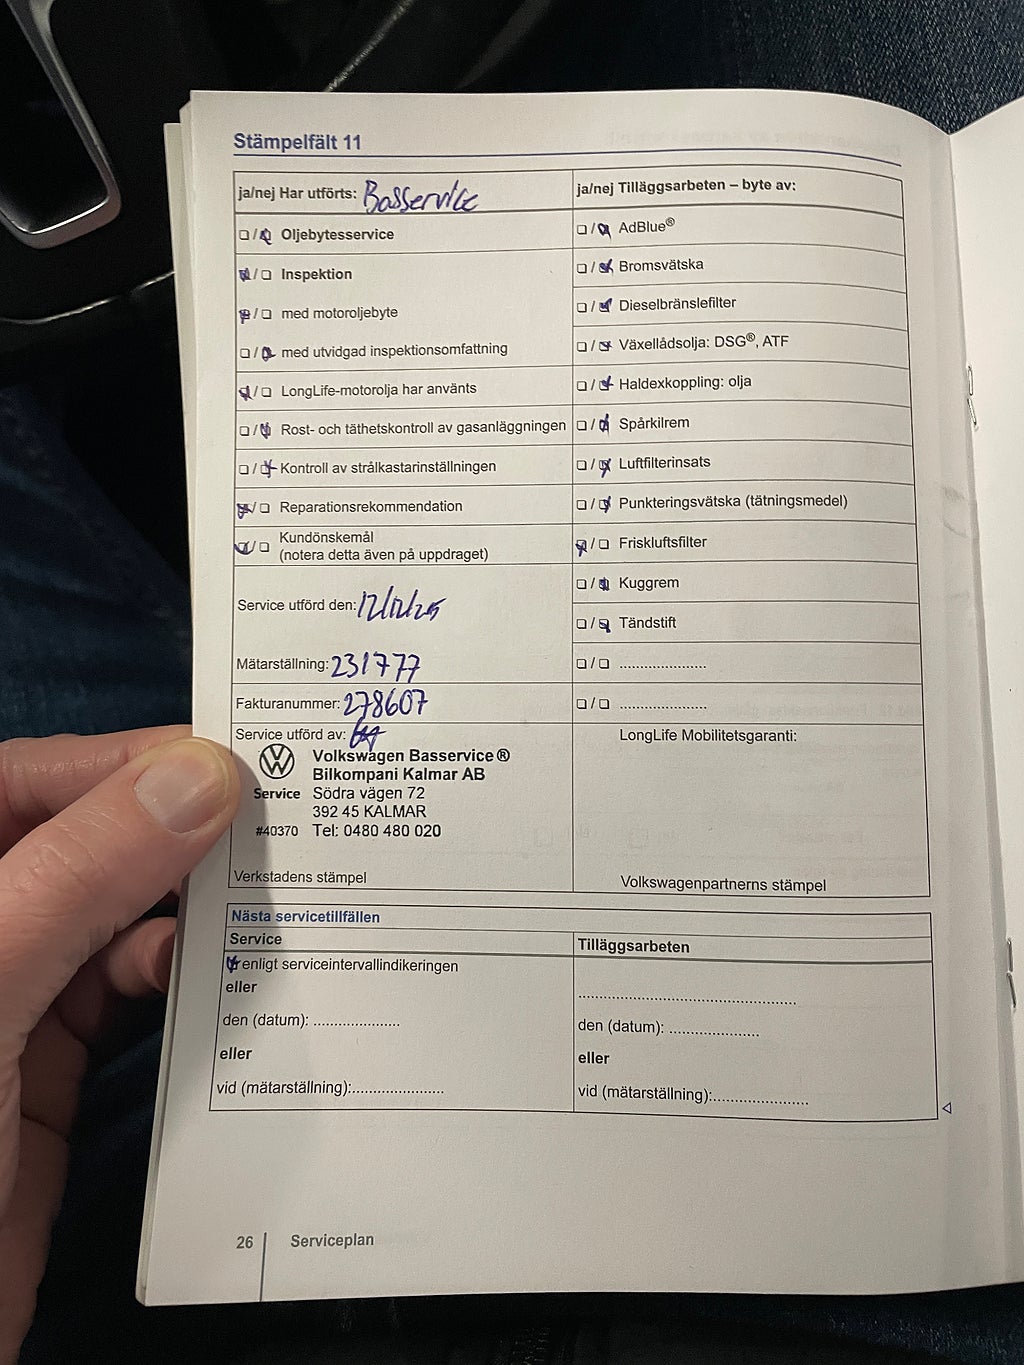 Stämpelfält 11
ja/nej Har utförts: Basservice
☐/☑ Oljebytesservice
☑/☐ Inspektion
☑/☐ med motoroljebyte
☐/☑ med utvidgad inspektionsomfattning
☑/☐ LongLife-motorolja har använts
☐/☑ Rost- och täthetskontroll av gasanläggningen
☐/☑ Kontroll av strålkastarinställningen
☑/☐ Reparationsrekommendation
☑/☐ Kundönskemål
(notera detta även på uppdraget)
Service utförd den:
Mätarställning: 231777
Fakturanummer: 278607
Service utförd av:
Volkswagen Basservice®
Bilkompani Kalmar AB
Service Södra vägen 72
392 45 KALMAR
#40370 Tel: 0480 480 020
Verkstadens stämpel
ja/nej Tilläggsarbeten – byte av:
☐/☑ AdBlue®
☐/☑ Bromsvätska
☐/☑ Dieselbränslefilter
☐/☑ Växellådsolja: DSG®, ATF
☐/☑ Haldexkoppling: olja
☐/☑ Spårkilrem
☐/☑ Luftfilterinsats
☐/☑ Punkteringsvätska (tätningsmedel)
☑/☐ Friskluftsfilter
☐/☑ Kuggrem
☐/☑ Tändstift
☐/☐ .....................
☐/☐ .....................
LongLife Mobilitetsgaranti:
Volkswagenpartnerns stämpel
Nästa servicetillfällen
Service
☑ enligt serviceintervallindikeringen
eller
den (datum): .....................
eller
vid (mätarställning):......................
Tilläggsarbeten
.....................................................
den (datum): ......................
eller
vid (mätarställning):.......................
26 Serviceplan